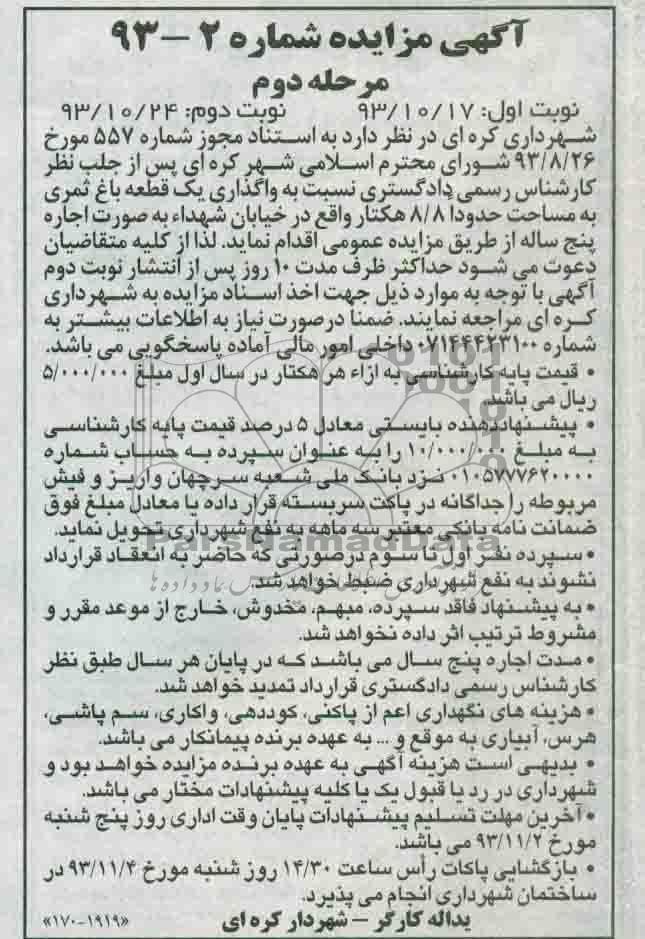 آگهی مزایده شماره ۲ – ۹۳
مرحله دوم
نوبت اول: ۹۳/۱۰/۱۷ نوبت دوم: ۹۳/۱۰/۲۴
شهرداری کره ای در نظر دارد به استناد مجوز شماره ۵۵۷ مورخ
۹۳/۸/۲۶ شورای محترم اسلامی شهر کره ای پس از جلب نظر
کارشناس رسمی دادگستری نسبت به واگذاری یک قطعه باغ ثمری
به مساحت حدودا ۸/۸ هکتار واقع در خیابان شهداء به صورت اجاره
پنج ساله از طریق مزایده عمومی اقدام نماید. لذا از کلیه متقاضیان
دعوت می شود حداکثر ظرف مدت ۱۰ روز پس از انتشار نوبت دوم
آگهی با توجه به موارد ذیل جهت اخذ اسناد مزایده به شهرداری
کره ای مراجعه نمایند. ضمنا درصورت نیاز به اطلاعات بیشتر به
شماره ۰۷۱۴۴۴۲۳۱۰۰ داخلی امور مالی آماده پاسخگویی می باشد.
• قیمت پایه کارشناسی به ازاء هر هکتار در سال اول مبلغ ۵/۰۰۰/۰۰۰
ریال می باشد.
• پیشنهاددهنده بایستی معادل ۵ درصد قیمت پایه کارشناسی
به مبلغ ۱۰/۰۰۰/۰۰۰ را به عنوان سپرده به حساب شماره
۰۱۰۵۷۷۷۶۲۰۰۰۰ نزد بانک ملی شعبه سرچهان واریز و فیش
مربوطه را جداگانه در پاکت سربسته قرار داده یا معادل مبلغ فوق
ضمانت نامه بانکی معتبر سه ماهه به نفع شهرداری تحویل نماید.
• سپرده نفر اول تا سوم درصورتی که حاضر به انعقاد قرارداد
نشوند به نفع شهرداری ضبط خواهد شد.
• به پیشنهاد فاقد سپرده، مبهم، مخدوش، خارج از موعد مقرر و
مشروط ترتیب اثر داده نخواهد شد.
• مدت اجاره پنج سال می باشد که در پایان هر سال طبق نظر
کارشناس رسمی دادگستری قرارداد تمدید خواهد شد.
• هزینه های نگهداری اعم از پاکنی، کوددهی، واکاری، سم پاشی،
هرس، آبیاری به موقع و ... به عهده برنده پیمانکار می باشد.
• بدیهی است هزینه آگهی به عهده برنده مزایده خواهد بود و
شهرداری در رد یا قبول یک یا کلیه پیشنهادات مختار می باشد.
• آخرین مهلت تسلیم پیشنهادات پایان وقت اداری روز پنج شنبه
مورخ ۹۳/۱۱/۲ می باشد.
• بازگشایی پاکات رأس ساعت ۱۴/۳۰ روز شنبه مورخ ۹۳/۱۱/۴ در
ساختمان شهرداری انجام می پذیرد.
یداله کارگر – شهردار کره ای
«۱۷۰-۱۹۱۹»
ParsNamadData